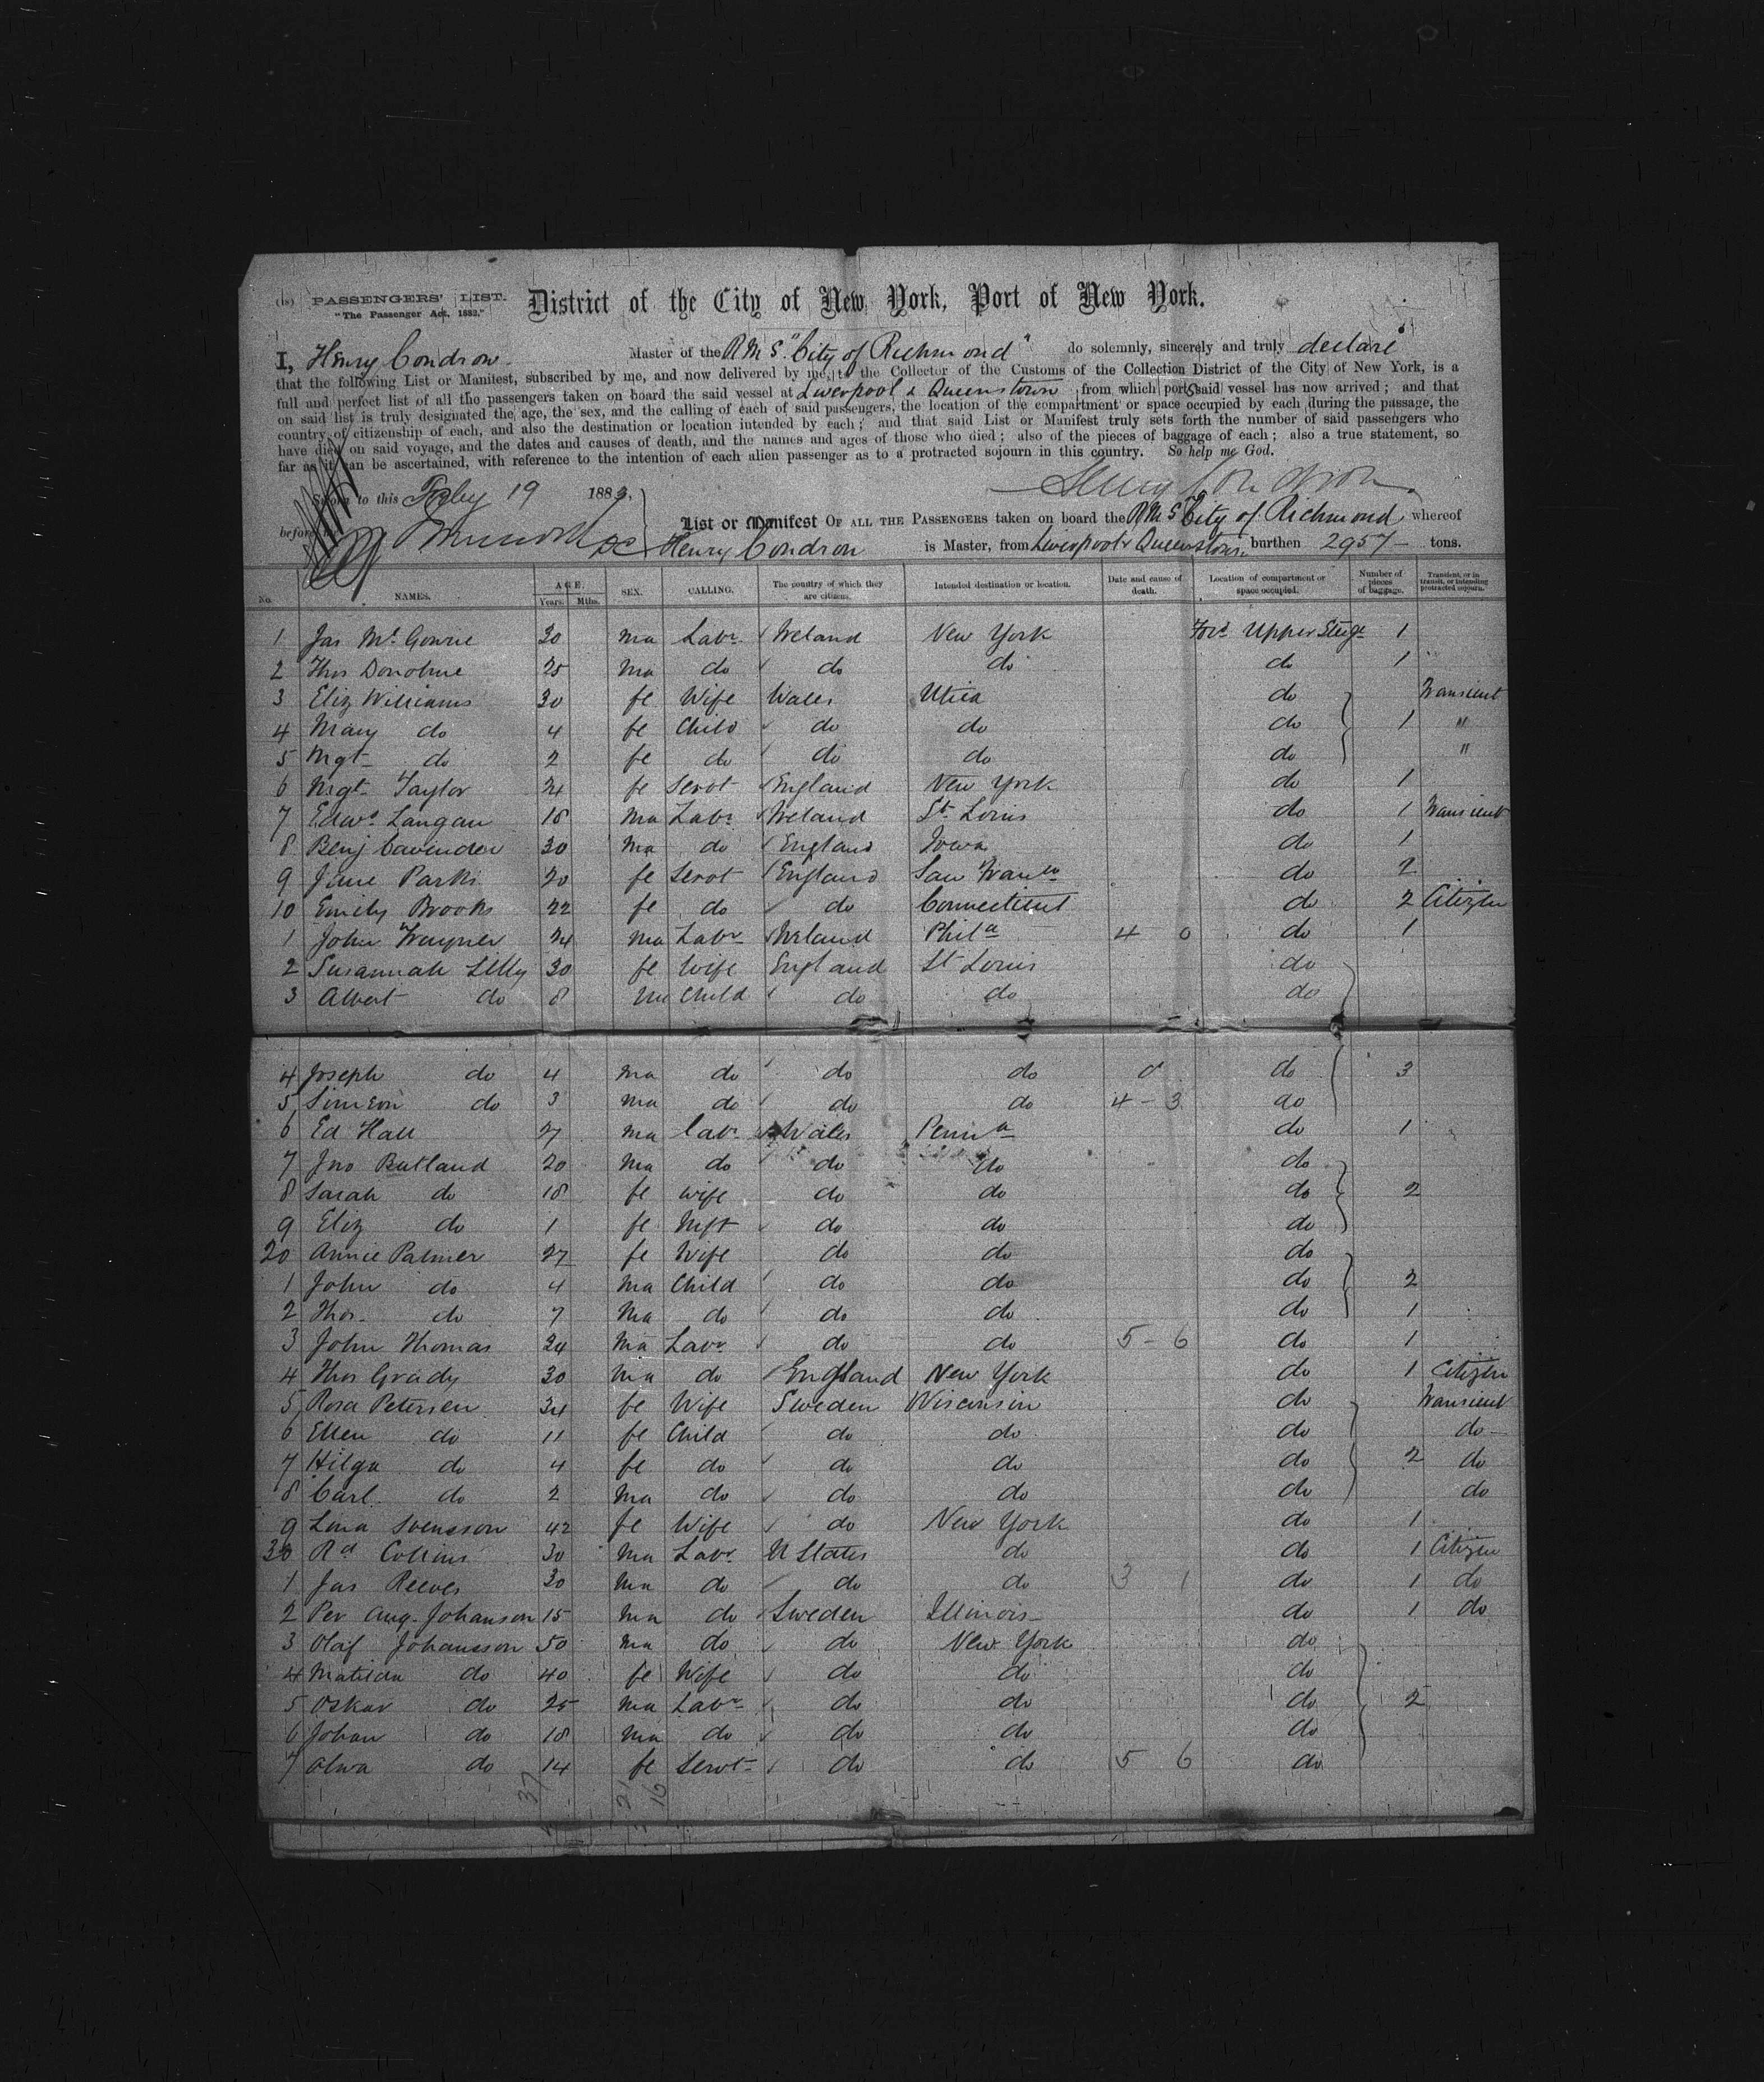 (1s) PASSENGERS' LIST.
"The Passenger Act, 1882."
District of the City of New York, Port of New York.
I, Henry Condron Master of the R M S. "City of Richmond" do solemnly, sincerely and truly declare
that the following List or Manifest, subscribed by me, and now delivered by me, to the Collector of the Customs of the Collection District of the City of New York, is a
full and perfect list of all the passengers taken on board the said vessel at Liverpool & Queenstown from which ports said vessel has now arrived; and that
on said list is truly designated the age, the sex, and the calling of each of said passengers, the location of the compartment or space occupied by each during the passage, the
country of citizenship of each, and also the destination or location intended by each; and that said List or Manifest truly sets forth the number of said passengers who
have died on said voyage, and the dates and causes of death, and the names and ages of those who died; also of the pieces of baggage of each; also a true statement, so
far as it can be ascertained, with reference to the intention of each alien passenger as to a protracted sojourn in this country. So help me God.
Henry Condron
Sworn to this Feby 19 1883,
before
List or Manifest OF ALL THE PASSENGERS taken on board the R M S City of Richmond whereof
Henry Condron is Master, from Liverpool & Queenstown. burthen 2957 tons.
No. NAMES. AGE. Years. Mths. SEX. CALLING. The country of which they are citizens. Intended destination or location. Date and cause of death. Location of compartment or space occupied. Number of pieces of baggage. Transient, or in transit, or intending protracted sojourn.
1 Jas McGowrie 30 ma Labr Ireland New York Ford Upper Steege 1
2 Thos Donohue 25 ma do do do do 1
3 Eliz Williams 30 fe Wife Wales Utica do Transient
4 Mary do 4 fe Child do do do 1 "
5 Mgt do 2 fe do do do do "
6 Mgt Taylor 24 fe Servt England New York do 1
7 Edwd Langan 18 ma Labr Ireland St Louis do 1 Transient
8 Benj Cavender 30 ma do England Iowa do 1
9 Jane Parks 20 fe Servt England San Franco do 2
10 Emily Brooks 22 fe do do Connecticut do 2 Citizen
1 John Trayner 24 ma Labr Ireland Phila 4 0 do 1
2 Susannah Lilly 30 fe Wife England St Louis do
3 Albert do 8 ma Child do do do
4 Joseph do 4 ma do do do do 3
5 Simeon do 3 ma do do do 4 - 3 do
6 Ed Hall 27 ma labr Wales Penna do 1
7 Jno Butland 20 ma do do do do
8 Sarah do 18 fe wife do do do 2
9 Eliz do 1 fe Inft do do do
20 Annie Palmer 27 fe Wife do do do
1 John do 4 ma Child do do do 2
2 Thos do 7 ma do do do do 1
3 John Thomas 24 ma Labr do do 5 - 6 do 1
4 Thos Grady 30 ma do England New York do 1 Citizen
5 Rosa Petersen 34 fe Wife Sweden Wisconsin do Transient
6 Ellen do 11 fe Child do do do do
7 Hilga do 4 fe do do do do 2 do
8 Carl do 2 ma do do do do do
9 Lina Svensson 42 fe Wife do New York do 1
30 Rd Collins 30 ma Labr U States do do 1 Citizen
1 Jas Reeves 30 ma do do do 3 1 do 1 do
2 Per Aug. Johanson 15 ma do Sweden Illinois do 1 do
3 Olaf Johansson 50 ma do do New York do
4 Matilda do 40 fe Wife do do do
5 Oskar do 25 ma Labr do do do 2
6 Johan do 18 ma do do do do
7 Alwa do 14 fe Servt do do 5 6 do
37 21 16